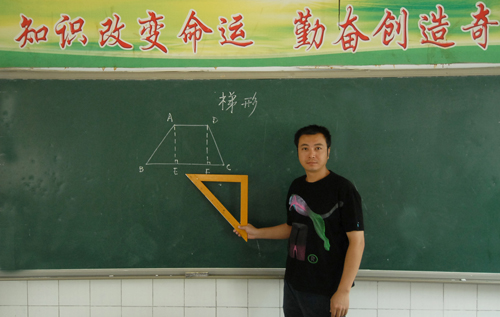 知识改变命运 勤奋创造奇
梯形
A D
B E F C